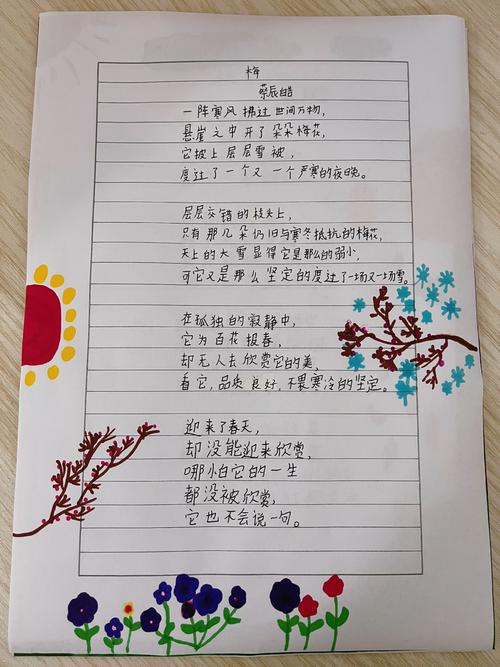 梅
蔡辰皓
一阵寒风拂过世间万物，
悬崖之中开了朵朵梅花，
它披上层层雪被，
度过了一个又一个严寒的夜晚。
层层交错的枝头上，
只有那几朵仍旧与寒冬抵抗的梅花，
天上的大雪显得它是那么的弱小，
可它又是那么坚定的度过了一场又一场雪。
在孤独的寂静中，
它为百花报春，
却无人去欣赏它的美，
看它，品质良好，不畏寒冷的坚定。
迎来了春天，
却没能迎来欣赏，
哪怕它的一生
都没被欣赏，
它也不会说一句。